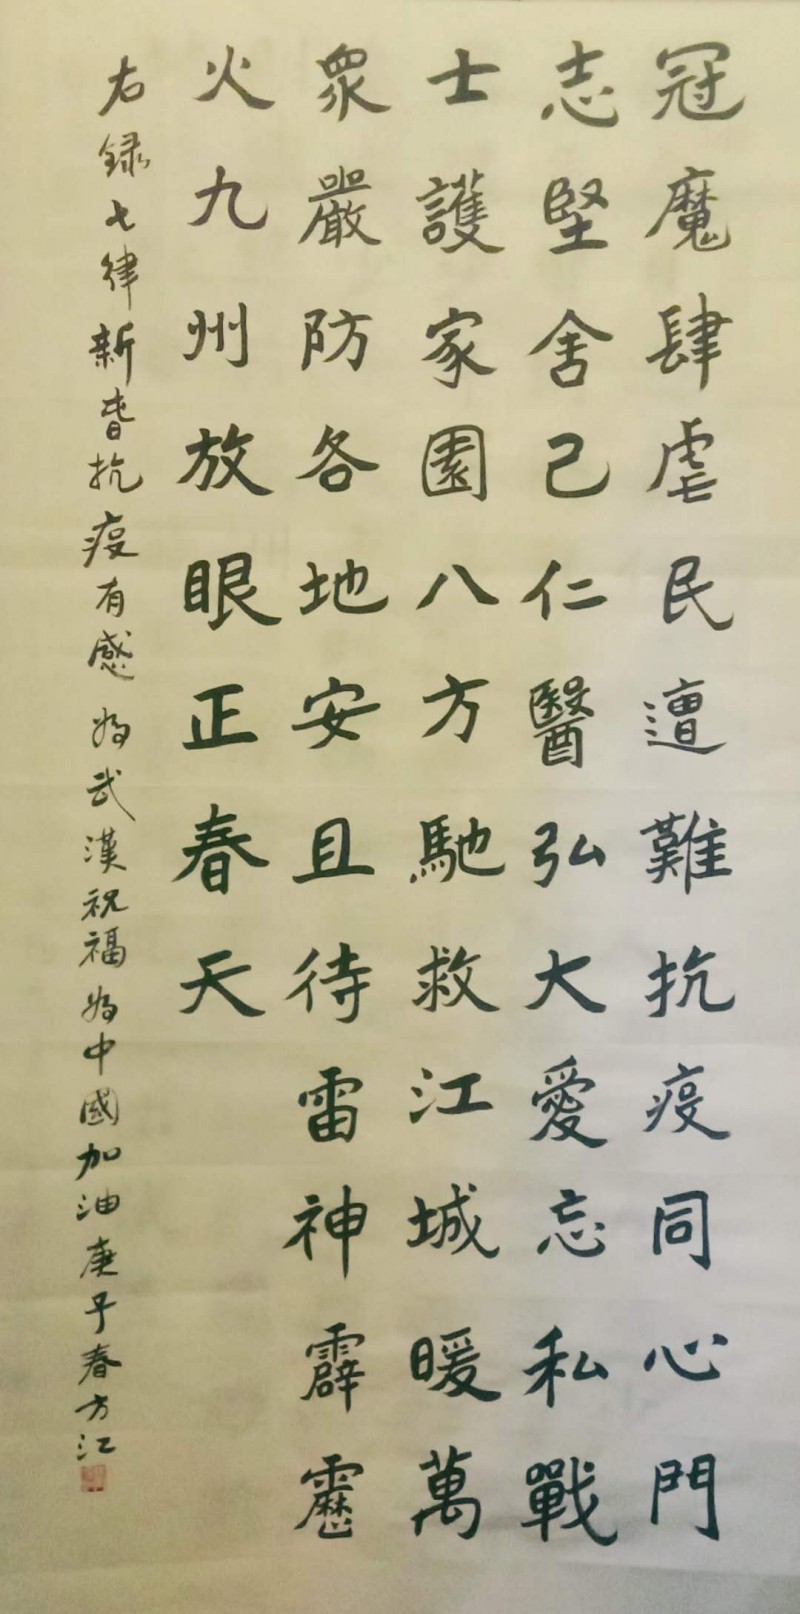 冠魔肆虐民遭難抗疫同心門
志堅舍己仁醫弘大愛忘私戰
士護家園八方馳救江城暖萬
眾嚴防各地安且待雷神霹靂
火九州放眼正春天
右録七律新旾抗疫有感 为武漢祝福为中國加油庚子春方江